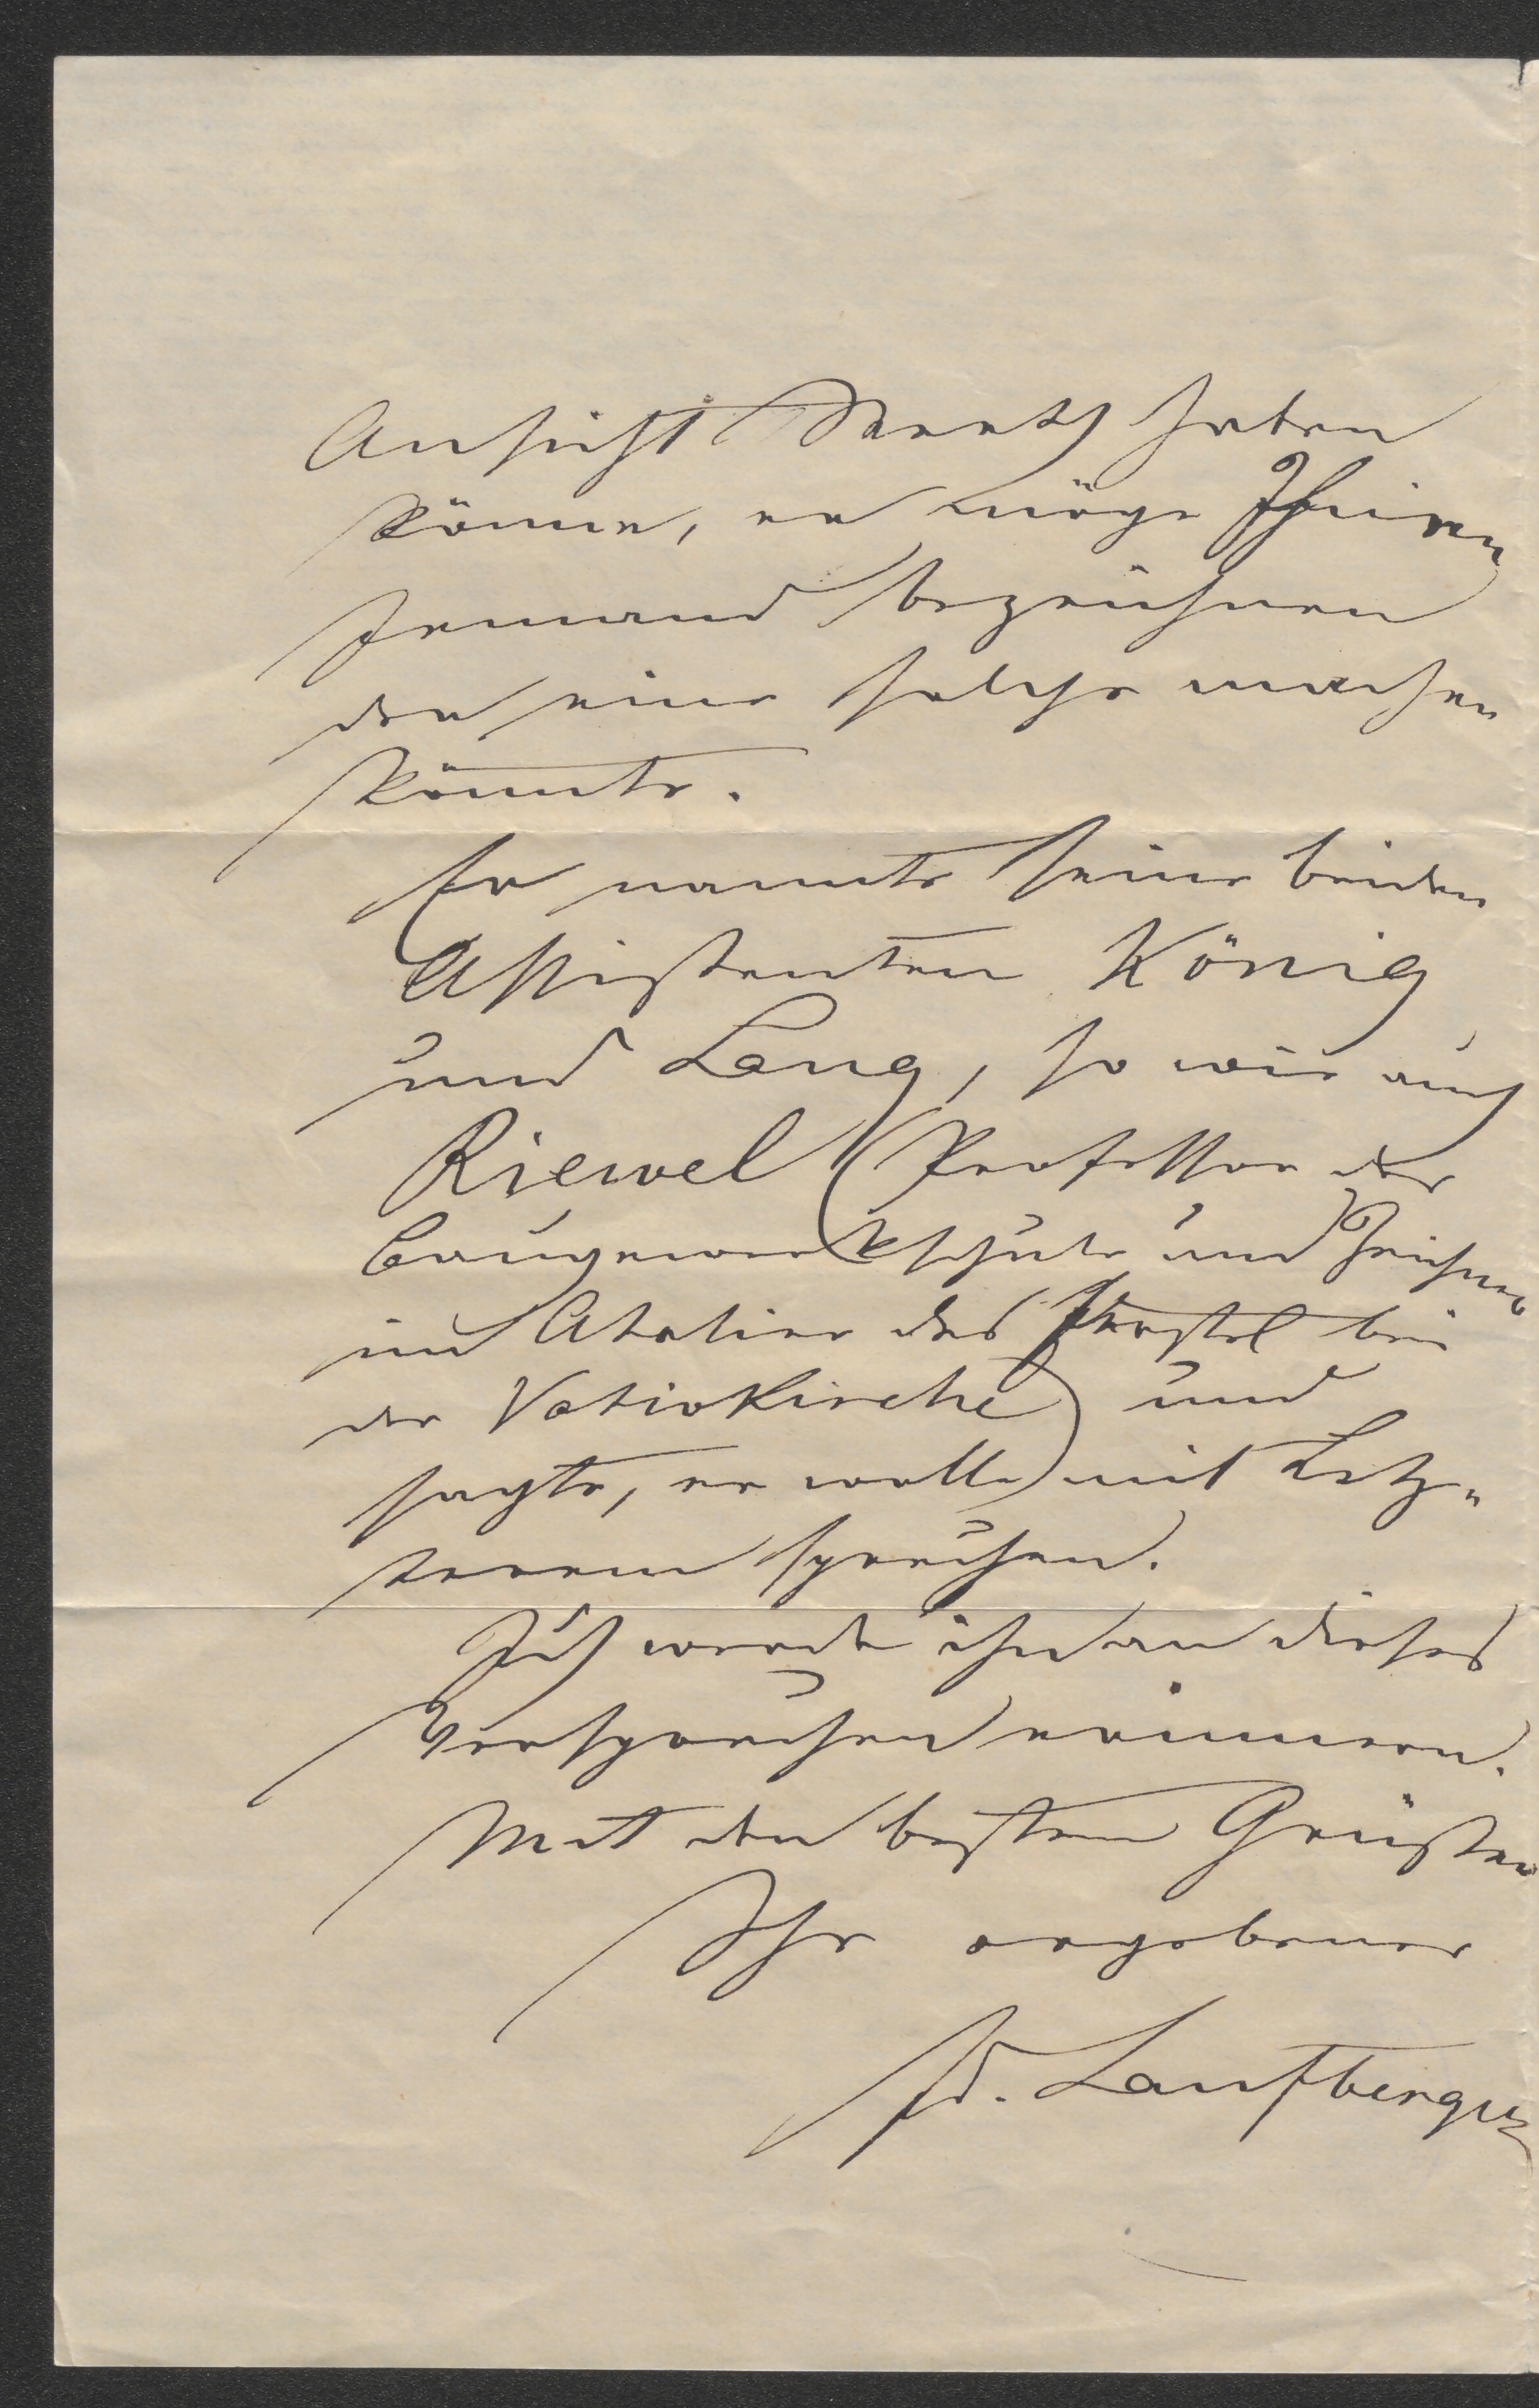 Ansicht Werth haben
könne, er möge Ihnen
Jemand bezeichnen
der eine solche machen
könnte.
Er nannte seine beiden
Assistenten König
und Lang, so wie auch
Riewel (Professor der
Baugewerkschule und Zeichner
im Atelier des Ferstel bei
der Votivkirche) und
sagte, er wolle mit Letz„
terem sprechen.
Ich werde ihn an dieses
Versprechen erinnern.
Mit den besten Grüßen
Ihr ergebener
Fd. Laufberger